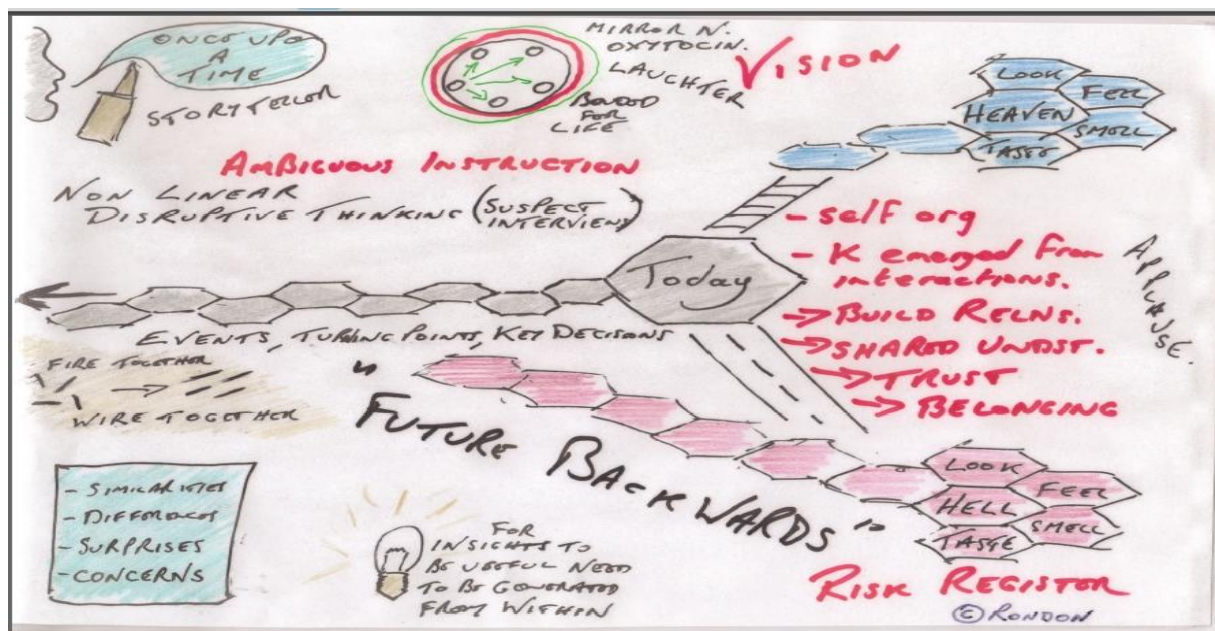 ONCE UPON
A
TIME
STORYTELLOR
MIRROR N.
OXYTOCIN.
LAUGHTER
BONDED
FOR
LIFE
VISION
LOOK
FEEL
HEAVEN
SMELL
TASTE
AMBIGUOUS INSTRUCTION
NON LINEAR
DISRUPTIVE THINKING (SUSPECT
INTERVIEWS)
Today
- self org
- K emerged from
interactions.
→ BUILD RELNS.
→ SHARED UNDST.
→ TRUST
→ BELONGING
APPLAUSE.
EVENTS, TURNING POINTS, KEY DECISIONS
FIRE TOGETHER
WIRE TOGETHER
"FUTURE BACKWARDS"
- SIMILARITIES
- DIFFERENCES
- SURPRISES
- CONCERNS
FOR
INSIGHTS TO
BE USEFUL NEED
TO BE GENERATED
FROM WITHIN
LOOK
FEEL
HELL
SMELL
TASTE
RISK REGISTER
© RONDON